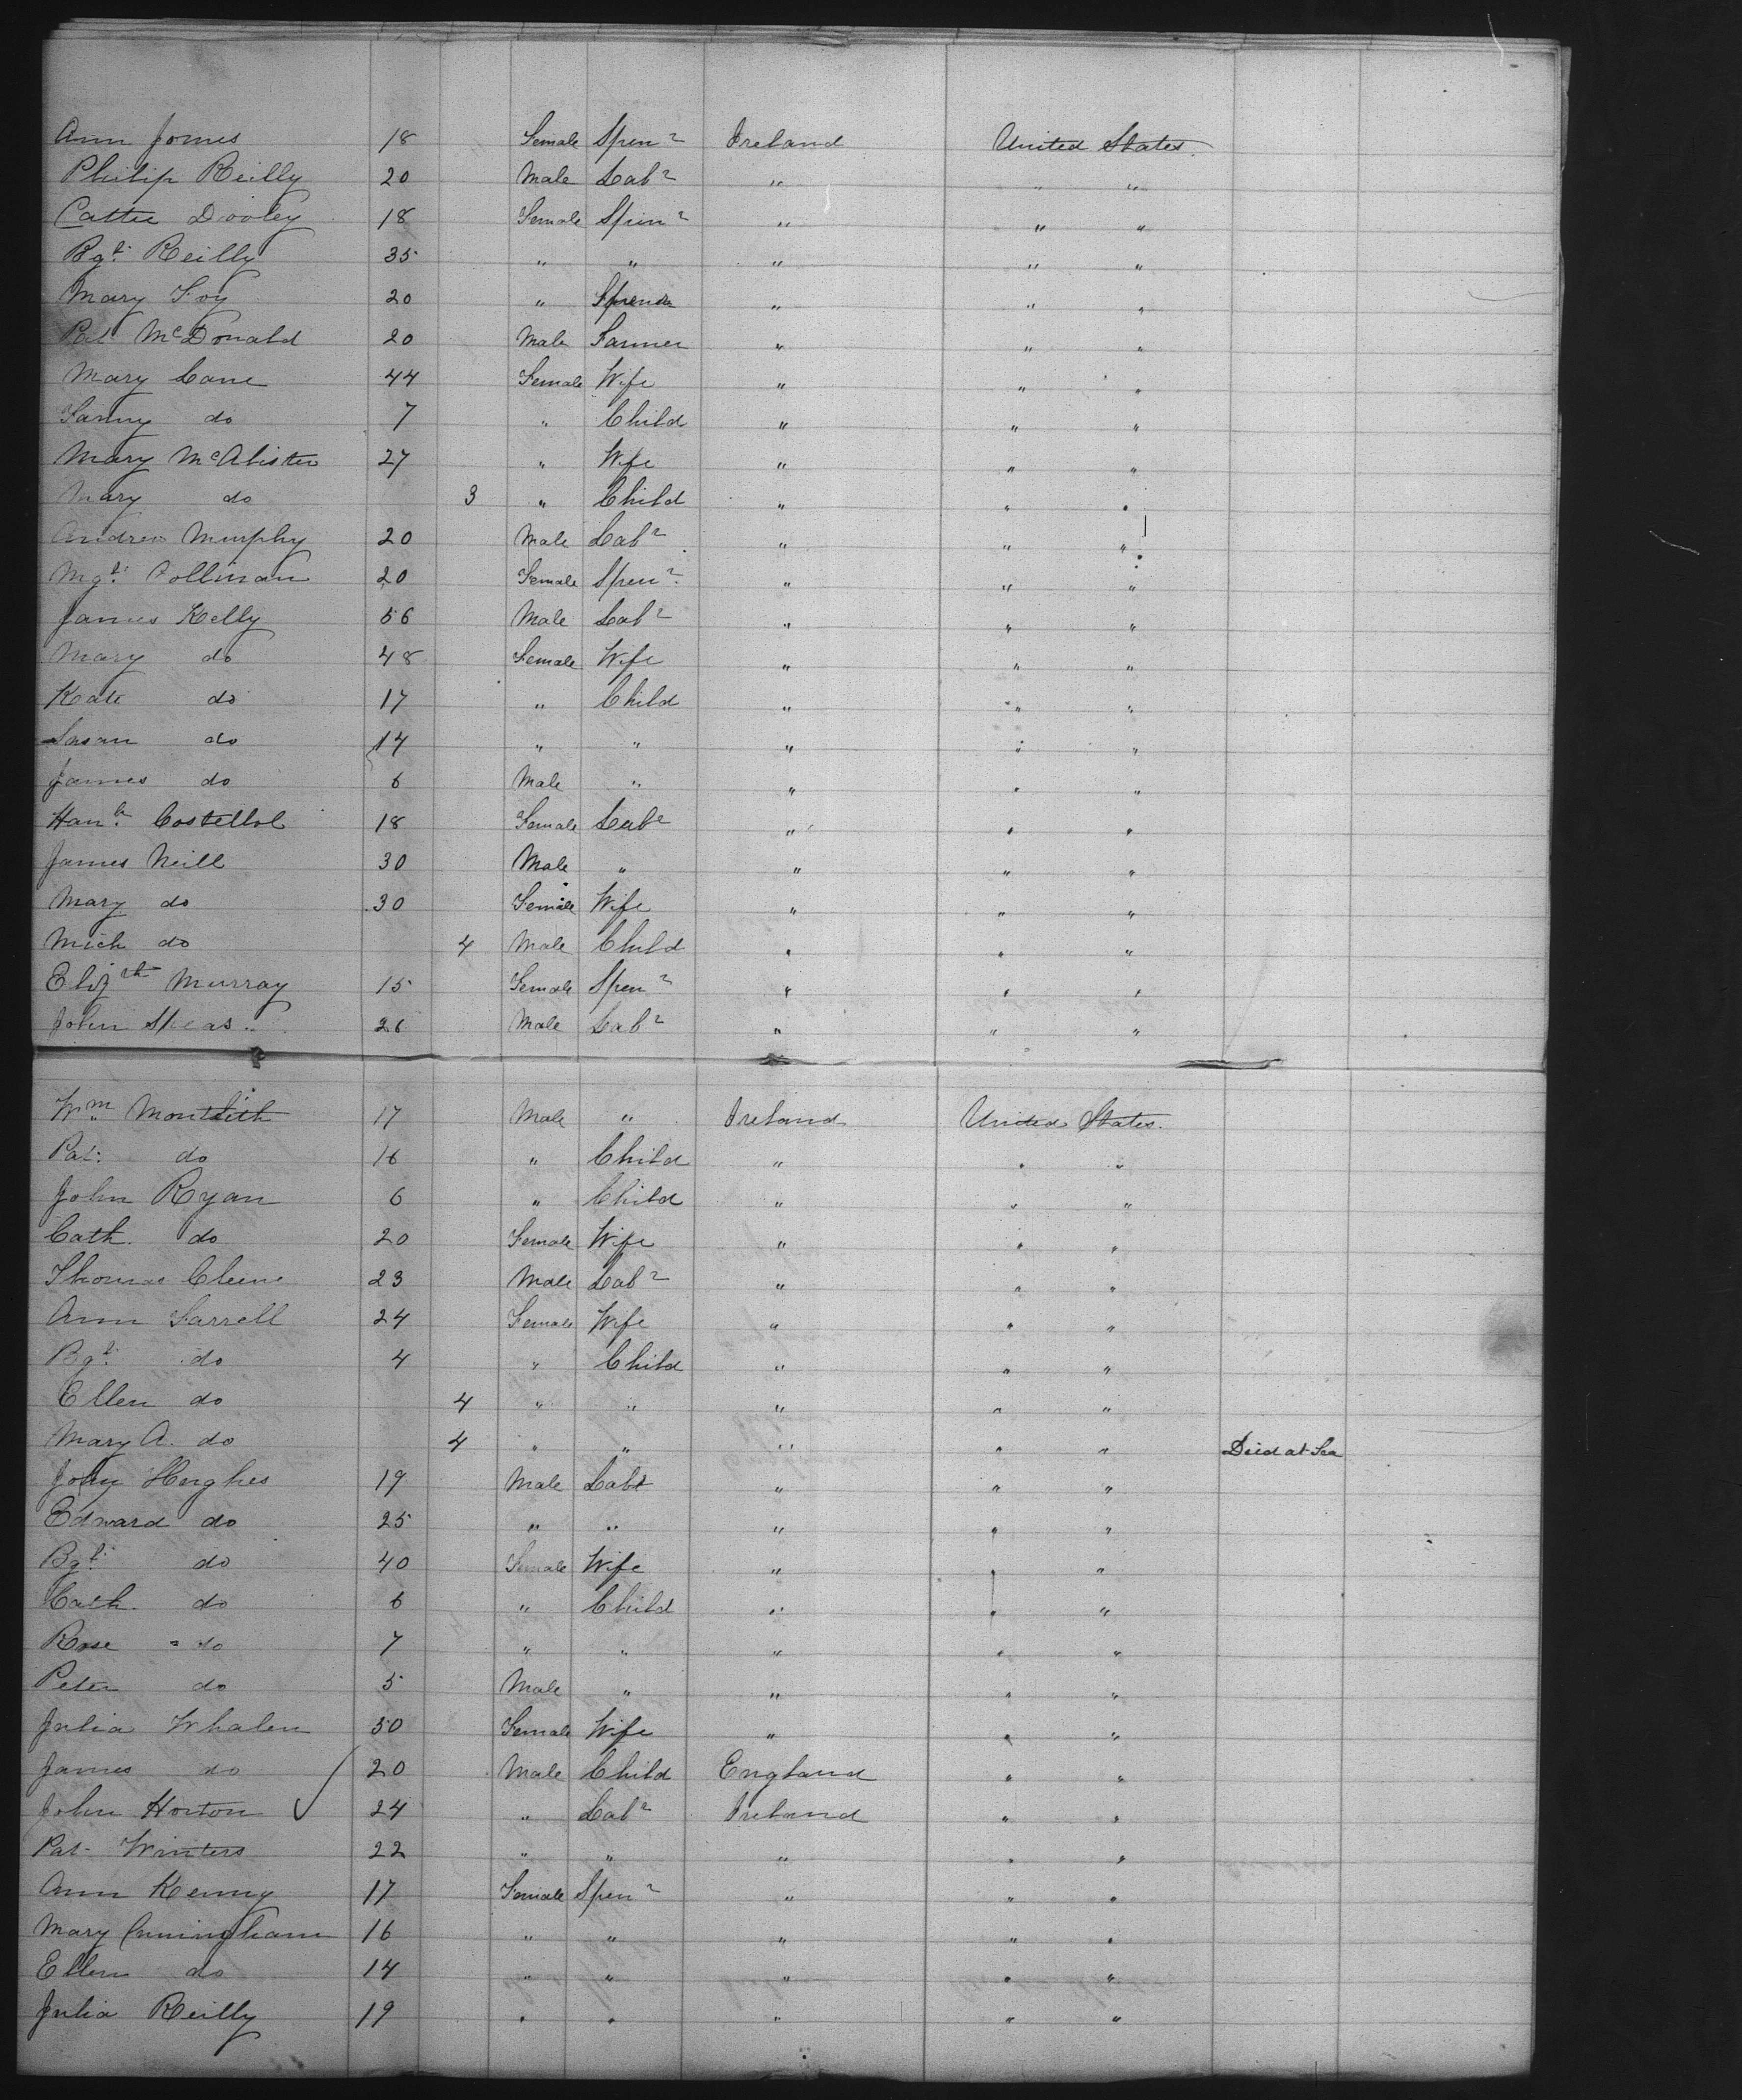 Ann Jomes 18 Female Spen r Ireland United States.
Philip Reilly 20 Male Lab r " " "
Cattie Dooley 18 Female Spin r " " "
Bgt. Reilly 35 " " " " "
Mary Foy 20 " " " "
Pat McDonald 20 Male Farmer " " "
Mary Cane 44 Female Wife " " "
Fanny do 7 " Child " " "
Mary McAlister 27 " Wife " " "
Mary do 3 " Child " " "
Andrew Murphy 20 Male Lab r " " "
Mgt. 20 Female Spen r " " "
James Kelly 56 Male Lab r " " "
Mary do 48 Female Wife " " "
Kate do 17 " Child " " "
Susan do 14 " " " " "
James do 6 Male " " " "
Han h Costello 18 Female Lab r " " "
James Neill 30 Male " " " "
Mary do 30 Female Wife " " "
Mich do 4 Male Child " " "
Eliz th Murray 15 Female Spen r " " "
John Speas 26 Male Lab r " " "
Wm Montieth 17 Male " Ireland United States.
Pat. do 16 " Child " " "
John Ryan 6 " Child " " "
Cath. do 20 Female Wife " " "
Thomas 23 Male Lab r " " "
Ann Farrell 24 Female Wife " " "
Bgt. do 4 " Child " " "
Ellen do 4 " " " " "
Mary A. do 4 " " " " " Died at Sea
John Hughes 19 Male Lab r " " "
Edward do 25 " " " " "
Bgt. do 40 Female Wife " " "
Cath. do 6 " Child " " "
Rose do 7 " " " " "
Peter do 5 Male " " " "
Julia Whalen 50 Female Wife " " "
James do 20 Male Child England " "
John Horton 24 " Lab r Ireland " "
Pat. Winters 22 " " " " "
Ann Kenny 17 Female Spen r " " "
Mary Cuningham 16 " " " " "
Ellen do 14 " " " " "
Julia Reilly 19 " " " " "